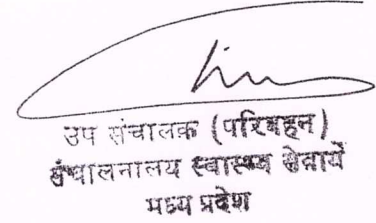 उप संचालक (परिवहन)
संचालनालय स्वास्थ्य सेवायें
मध्य प्रदेश